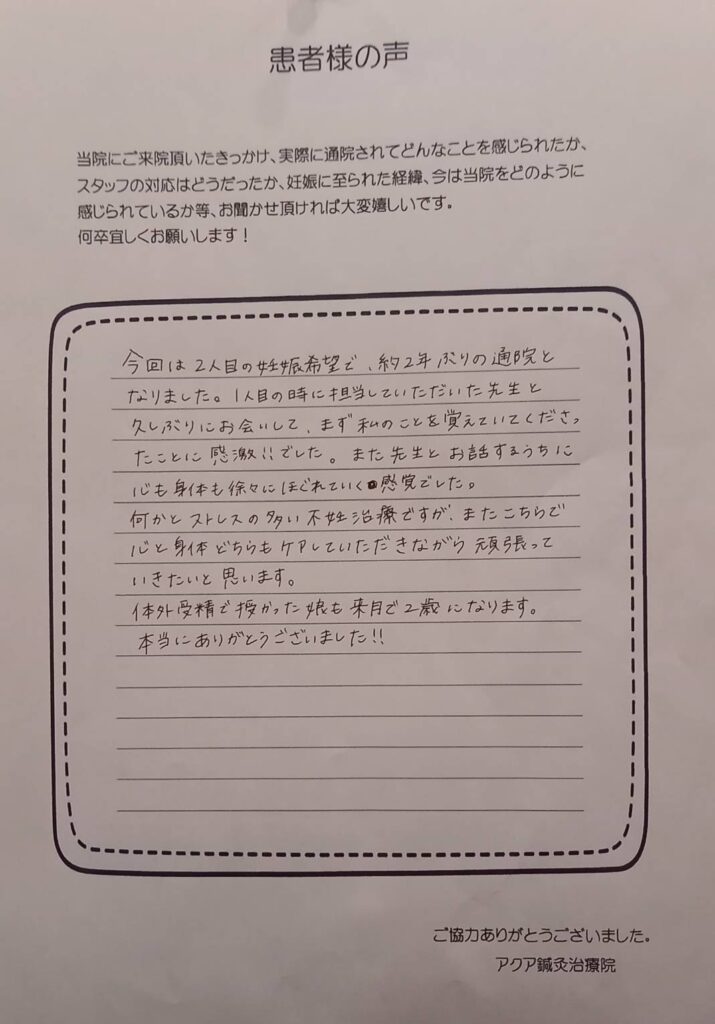 患者様の声
当院にご来院頂いたきっかけ、実際に通院されてどんなことを感じられたか、
スタッフの対応はどうだったか、妊娠に至られた経緯、今は当院をどのように
感じられているか等、お聞かせ頂ければ大変嬉しいです。
何卒宜しくお願いします！
今回は2人目の妊娠希望で、約2年ぶりの通院と
なりました。1人目の時に担当していただいた先生と
久しぶりにお会いして、まず私のことを覚えていてくださっ
たことに感激!!でした。また先生とお話するうちに
心も身体も徐々にほぐれていく感覚でした。
何かとストレスの多い不妊治療ですが、またこちらで
心と身体どちらもケアしていただきながら頑張って
いきたいと思います。
体外受精で授かった娘も来月で2歳になります。
本当にありがとうございました!!
ご協力ありがとうございました。
アクア鍼灸治療院